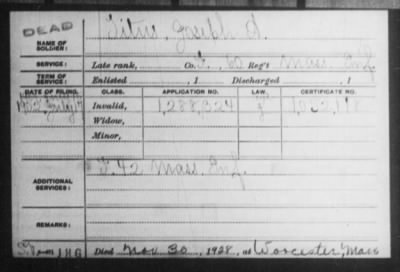 DEAD
NAME OF SOLDIER: Titus, Joseph S.
SERVICE: Late rank, Co. Reg't Mass Inf
TERM OF SERVICE: Enlisted , 1 Discharged , 1
DATE OF FILING. CLASS. APPLICATION NO. LAW. CERTIFICATE NO.
Invalid, 1,288,324
Widow,
Minor,
ADDITIONAL SERVICES: F. 42 Mass. Inf.
REMARKS:
Died Nov 30, 1928, at Worcester, Mass